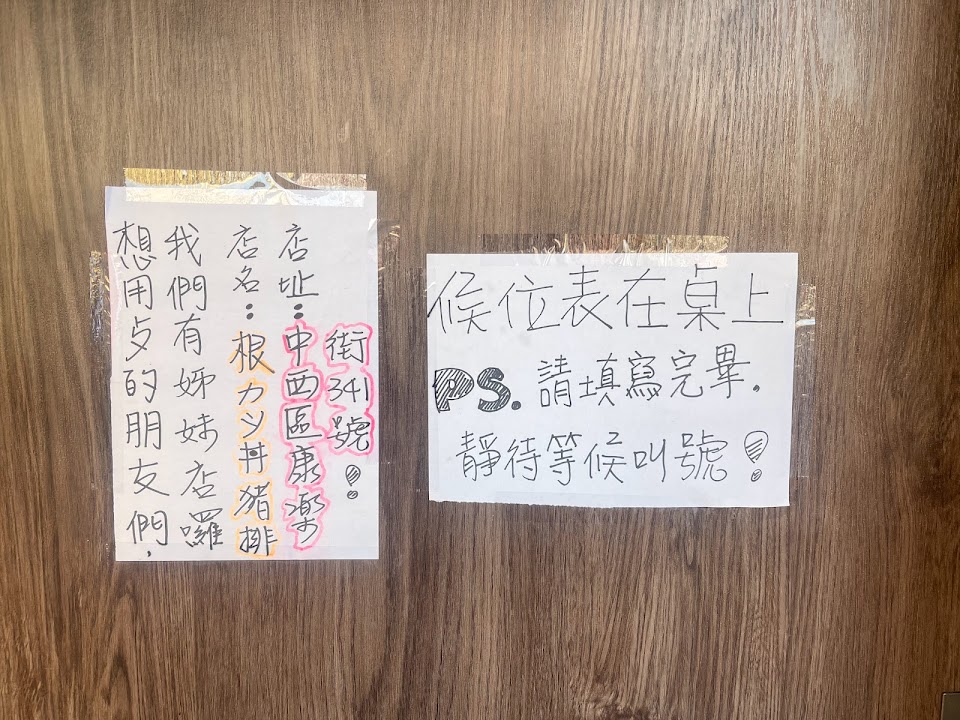 想用歺的朋友們,
我們有姊妹店囉
店名:根カツ丼豬排
店址:中西區康樂
街341號!
候位表在桌上
PS. 請填寫完畢.
靜待等候叫號!